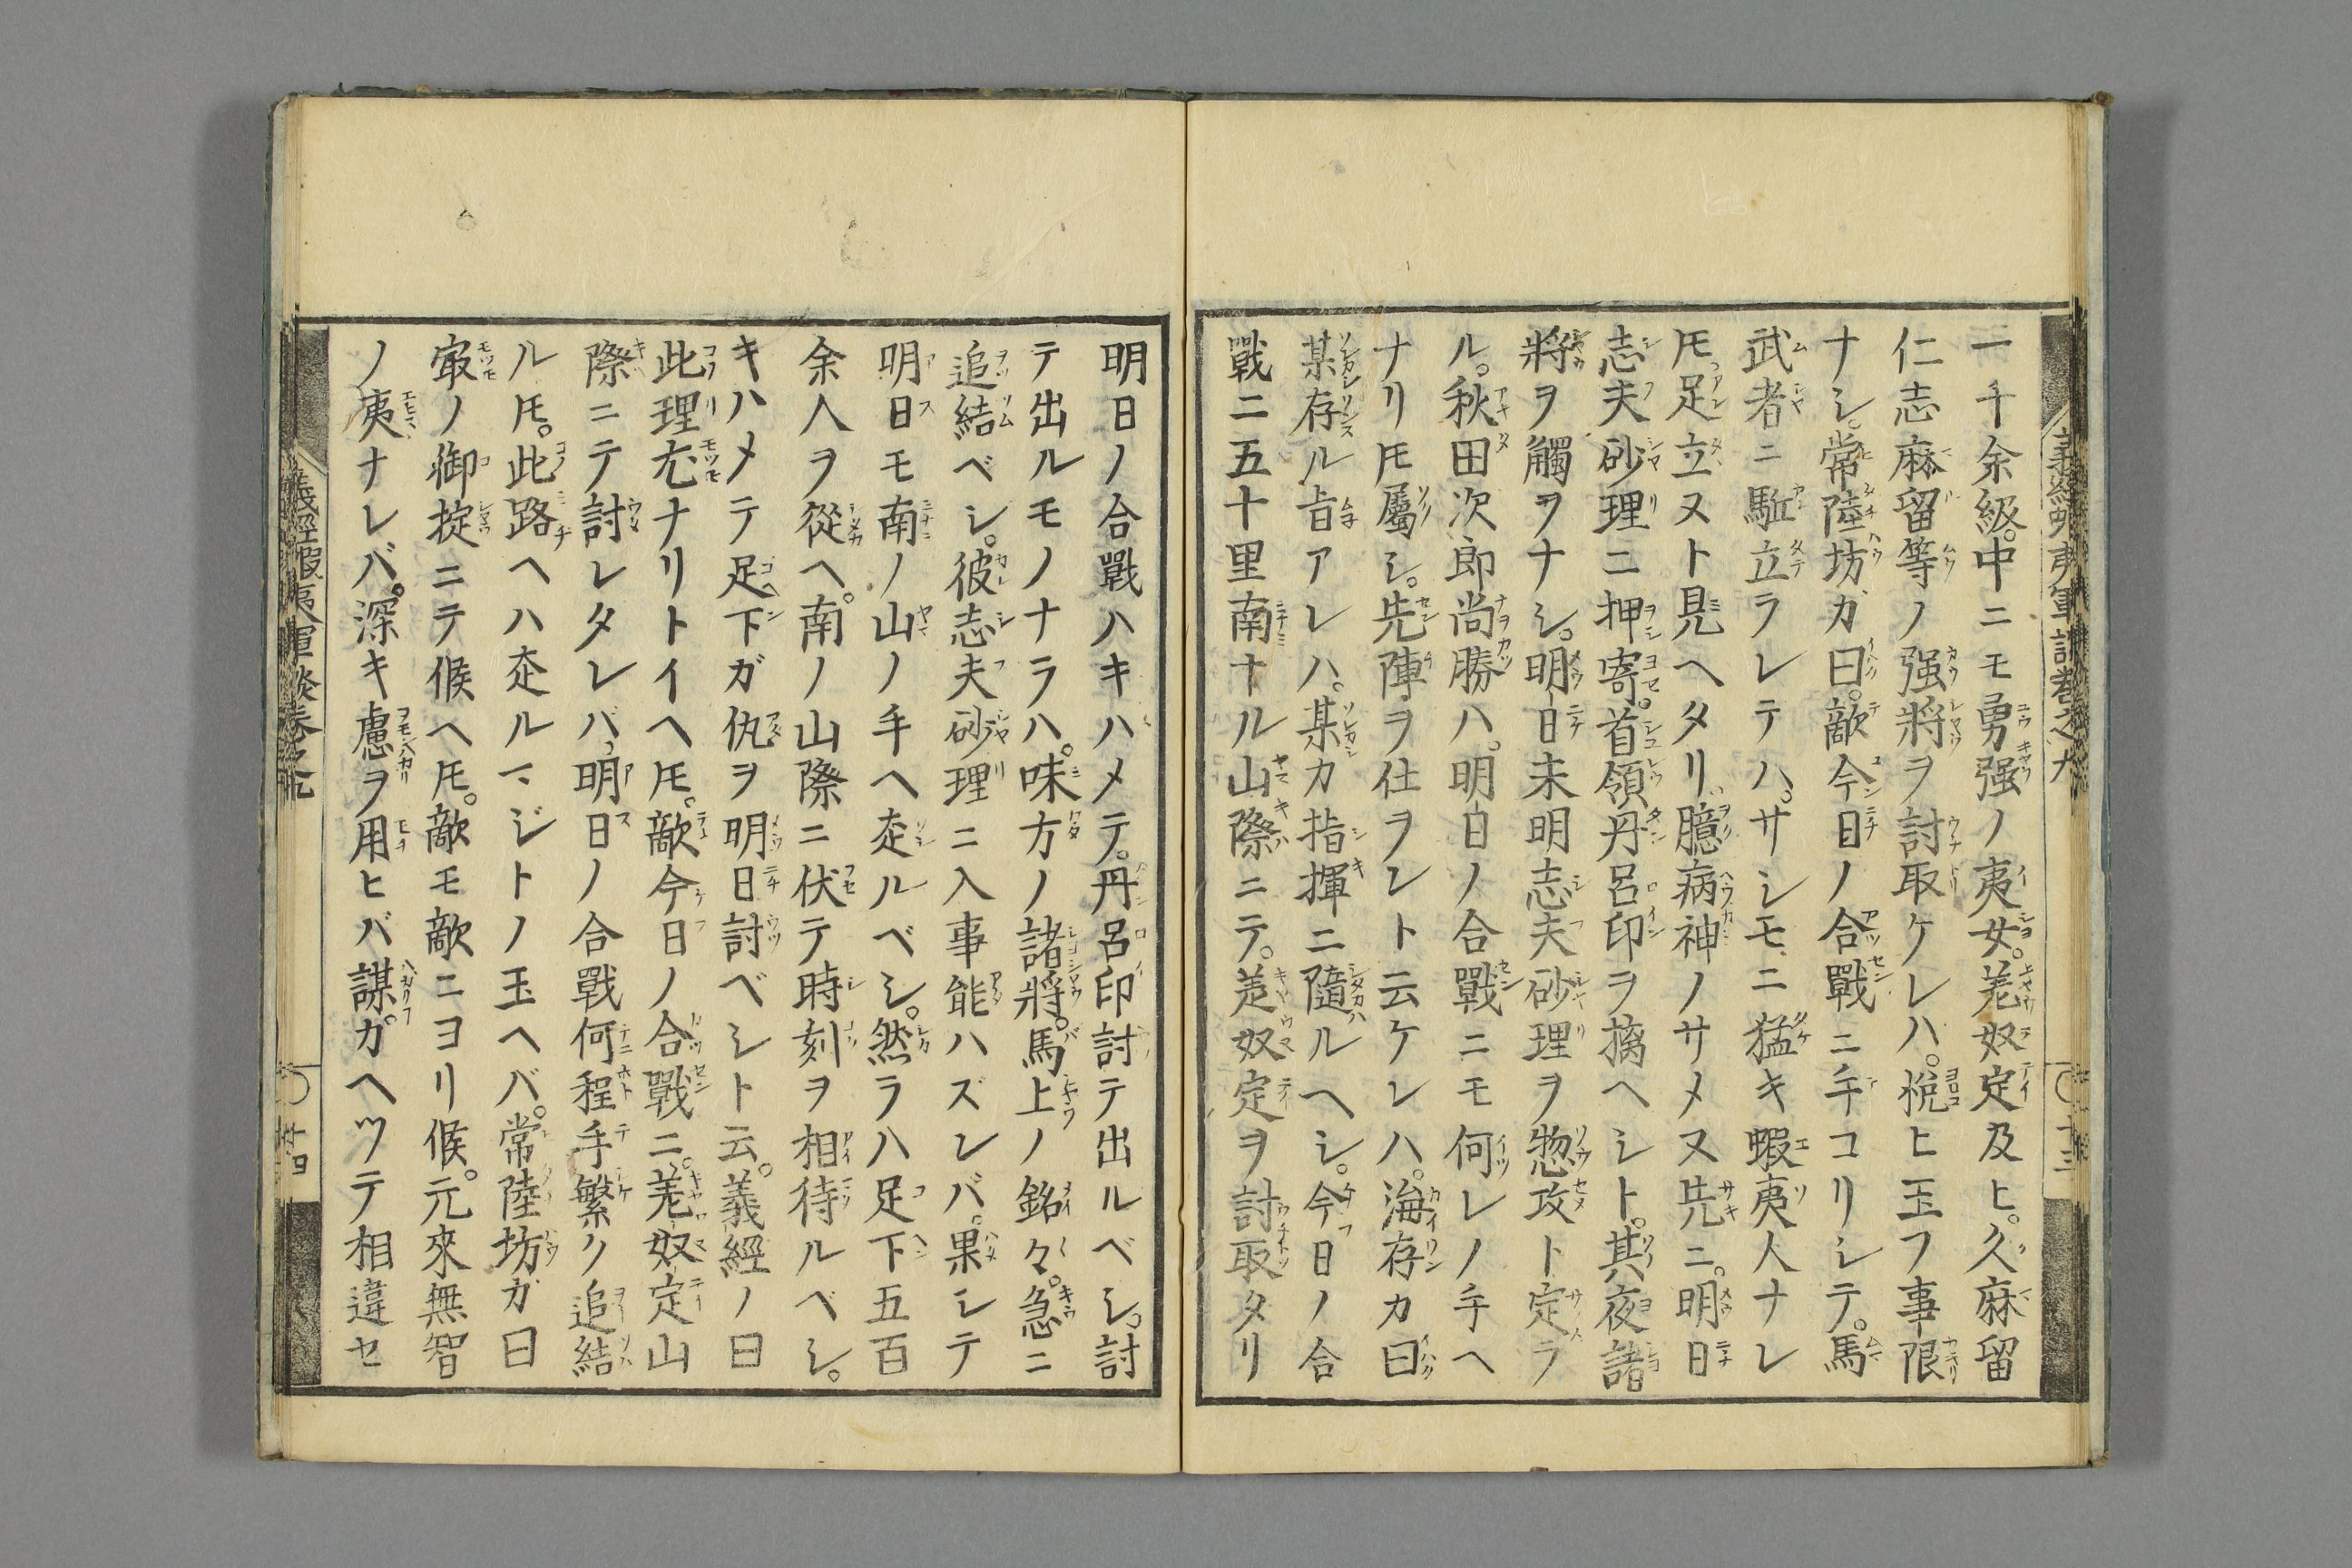 一千余級。中ニモ勇强ノ夷女。羌奴定及ヒ。久麻留
仁志麻留等ノ强將ヲ討取ケレハ。悅ヒ玉フ事限
ナシ。常陸坊ガ曰。敵今日ノ合戰ニ手コリシテ。馬
武者ニ駈立ラレテハ。サシモニ猛キ蝦夷人ナレ
𪜈。足立ヌト見ヘタリ。臆病神ノサメヌ先ニ。明日
志夫砂理ニ押寄。首領丹呂印ヲ擒ヘシト。其夜諸
將ヲ觸ヲナシ。明日未明志夫砂理ヲ惣攻ト定ラ
ル。秋田次郎尚勝ハ。明日ノ合戰ニモ何レノ手ヘ
ナリ𪜈屬シ。先陣ヲ仕ヲレト云ケレハ。海存カ曰
某存ル旨アレハ。某カ指揮ニ隨ルヘシ。今日ノ合
戰ニ五十里南ナル山際ニテ。羌奴定ヲ討取タリ
明日ノ合戰ハキハメテ。丹呂印討テ出ルベシ。討
テ出ルモノナラハ。味方ノ諸將。馬上ノ銘々。急ニ
追結ベシ。彼志夫砂理ニ入事能ハズレバ。果シテ
明日モ南ノ山ノ手ヘ赱ルベシ。然ラハ足下五百
余人ヲ從ヘ。南ノ山際ニ伏テ時刻ヲ相待ルベシ。
キハメテ足下ガ仇ヲ明日討ベシト云。義經ノ曰
此理尤ナリトイヘ𪜈。敵今日ノ合戰ニ。羌奴定山
際ニテ討レタレバ。明日ノ合戰何程手繁ク追結
ル𪜈。此路ヘハ赱ルマジトノ玉ヘバ。常陸坊ガ曰
㝡ノ御掟ニテ候ヘ𪜈。敵モ敵ニヨリ候。元來無智
ノ夷ナレバ。深キ慮ヲ用ヒバ謀ガヘツテ相違セ
義經蝦夷軍談卷之九
十三
義經蝦夷軍談卷之九
十四